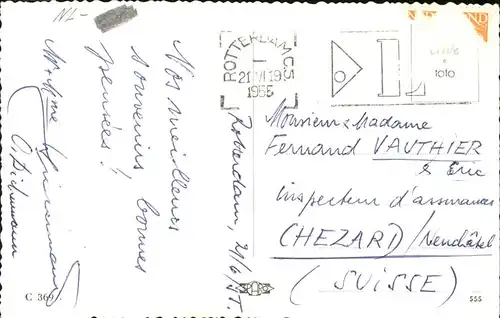 NL-
Nos meilleurs
souvenirs bonnes
pensées !
Mr & Mme
Rotterdam, 21/6/
ROTTERDAM C.S
21 VI 19
1965
foto
Monsieur & Madame
Fernand VAUTHIER
& Eric
inspecteur d'assurances
CHEZARD / Neuchâtel
(SUISSE)
C 369
555